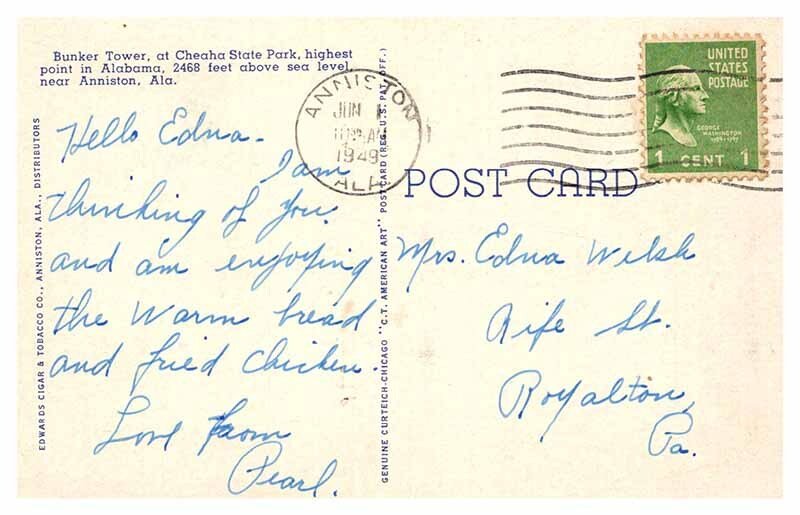 Bunker Tower, at Cheaha State Park, highest
point in Alabama, 2468 feet above sea level,
near Anniston, Ala.
EDWARDS CIGAR & TOBACCO CO., ANNISTON, ALA., DISTRIBUTORS
Hello Edna-
I am
thinking of you
and am enjoying
the warm bread
and fried chicken.
Love from
Pearl.
GENUINE CURTEICH-CHICAGO "C.T. AMERICAN ART" POST CARD (REG. U.S. PAT. OFF.)
ANNISTON
JUN 1
1949
ALA
UNITED
STATES
POSTAGE
GEORGE
WASHINGTON
1 CENT 1
POST CARD
Mrs. Edna Welsh
Rife St.
Royalton,
Pa.